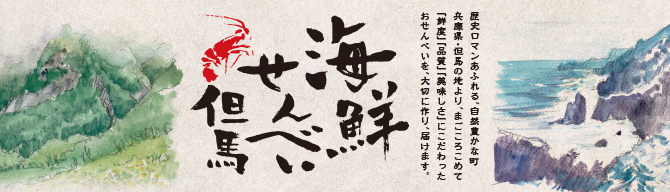 海鮮
せんべい
但馬
歴史ロマンあふれる、自然豊かな町
兵庫県・但馬の地より、まごころこめて
「鮮度」「品質」「美味しさ」にこだわった
おせんべいを、大切に作り、届けます。